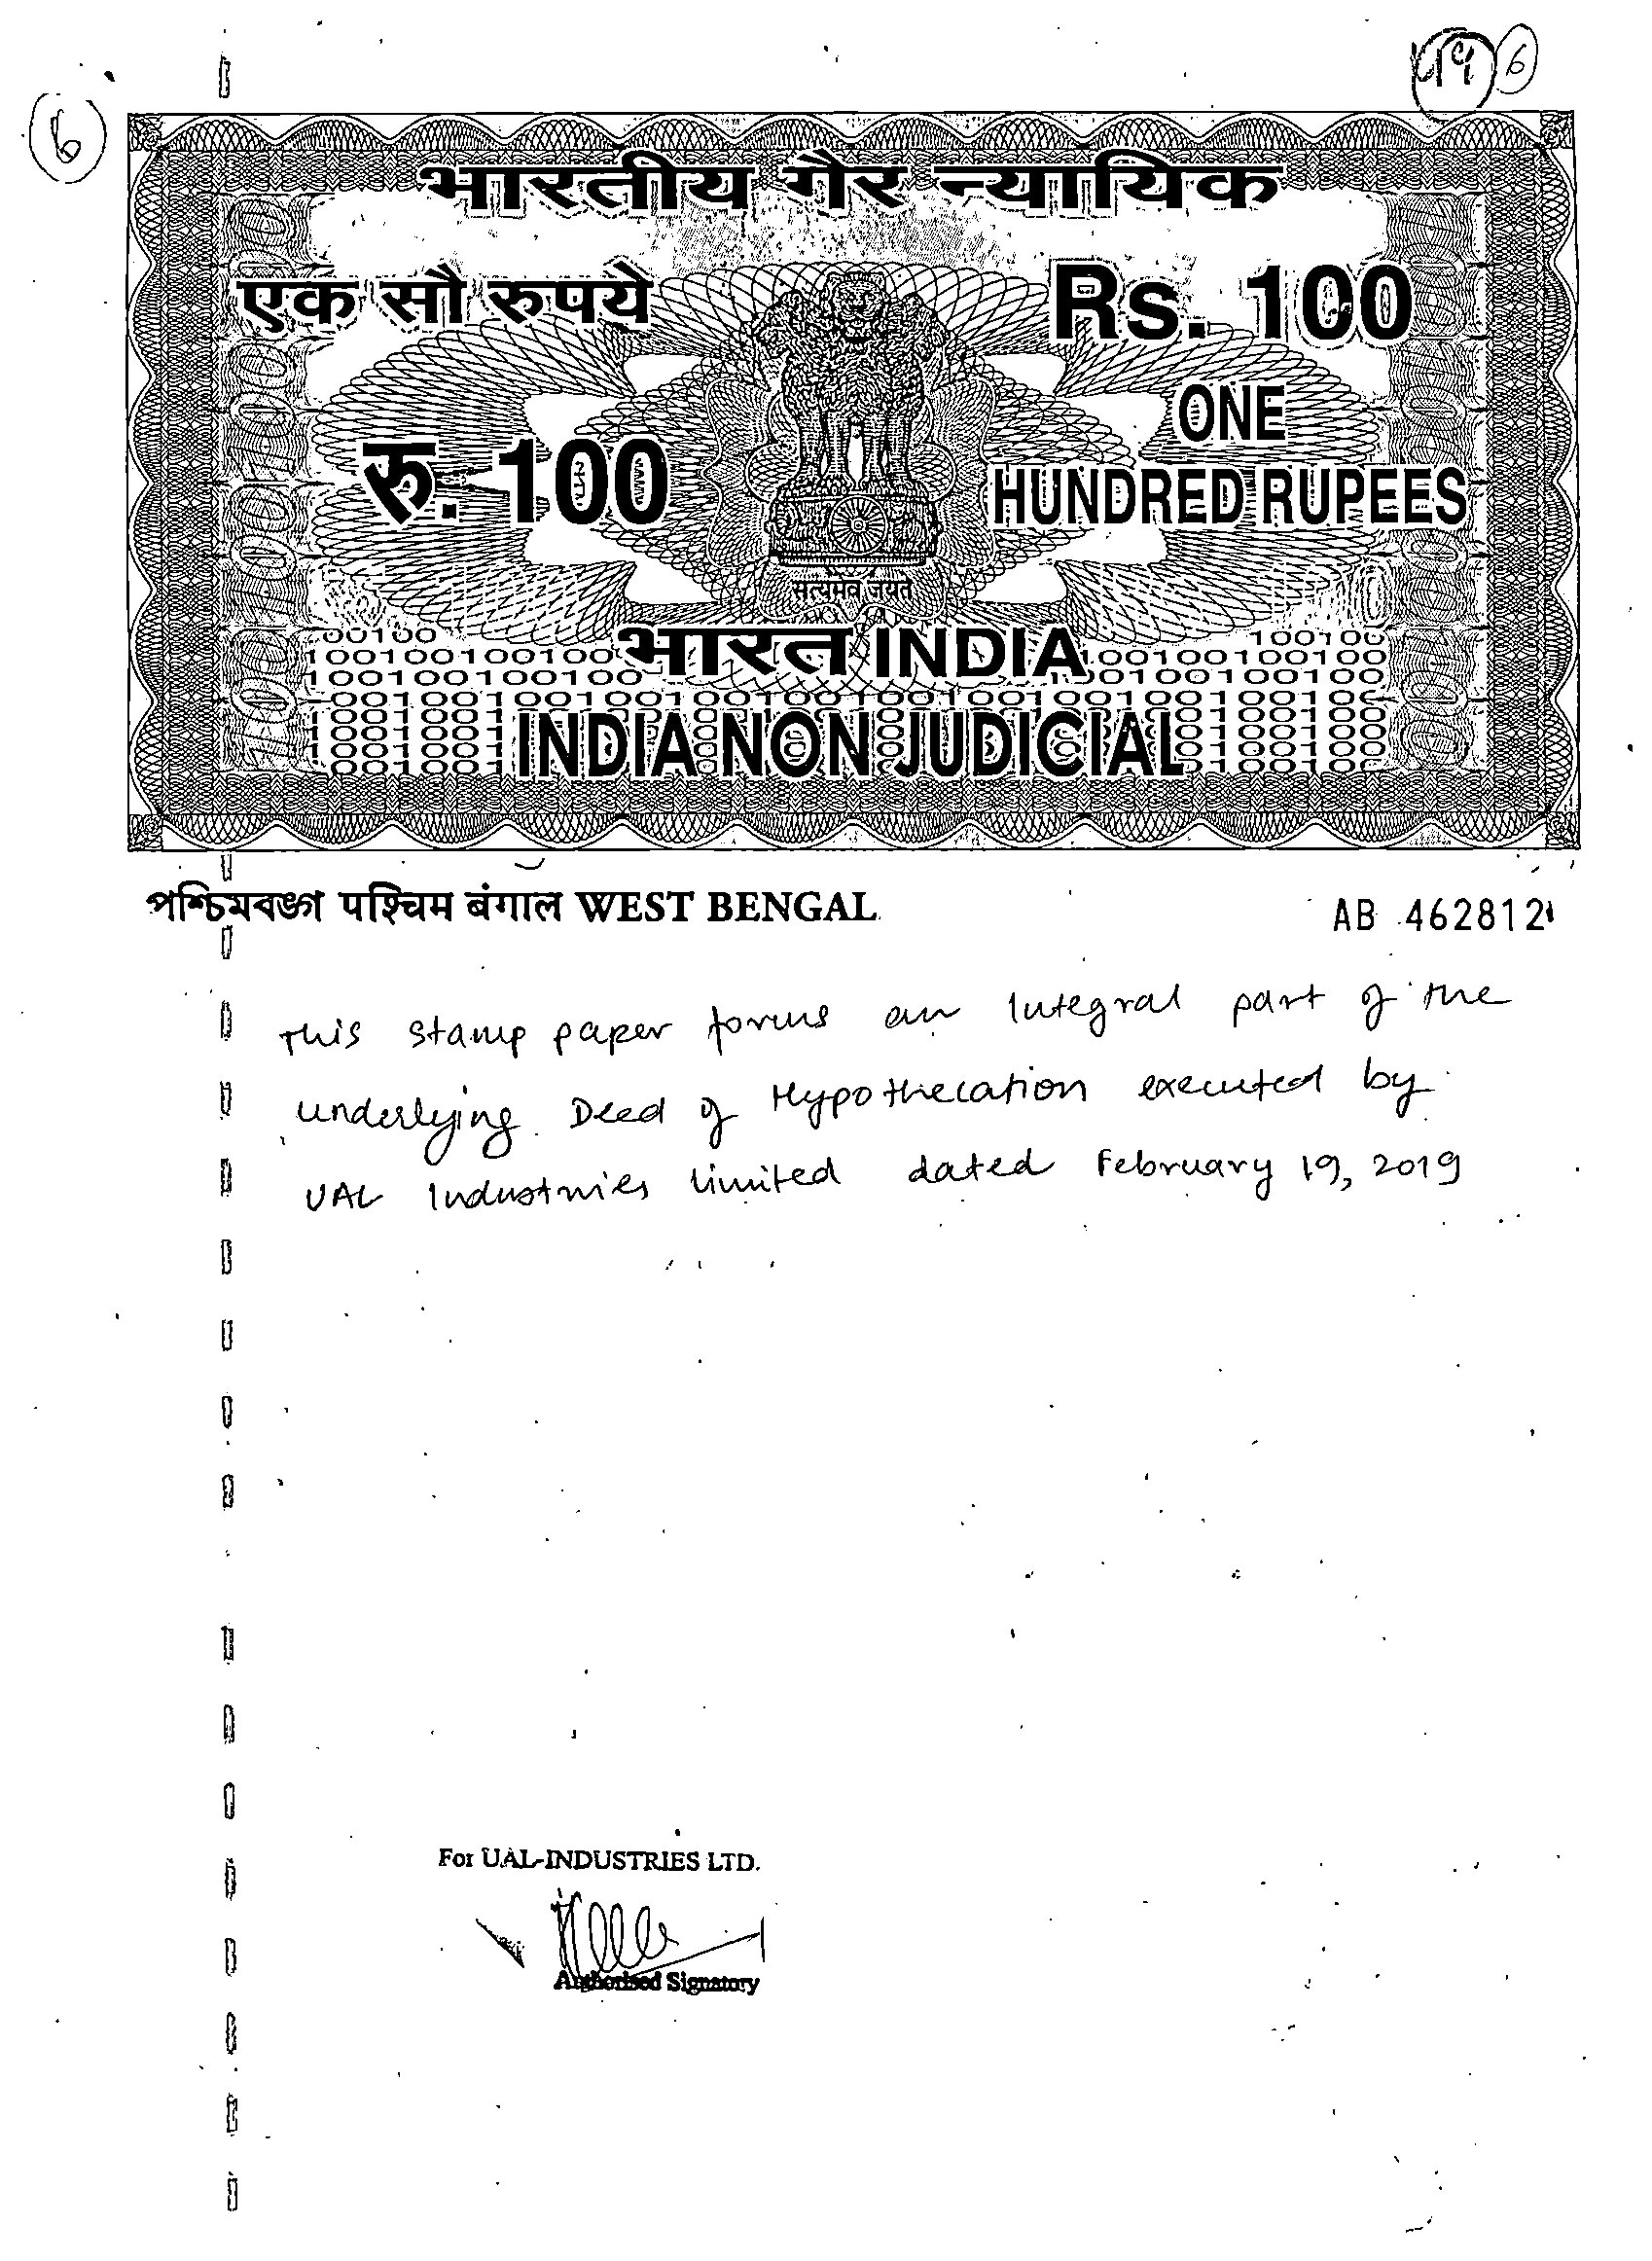 6
6
भारतीय गैर न्यायिक
एक सौ रुपये
Rs. 100
रु. 100
ONE
HUNDRED RUPEES
सत्यमेव जयते
भारत INDIA
INDIA NON JUDICIAL
পশ্চিমবঙ্গ पश्चिम बंगाल WEST BENGAL
AB 462812
This stamp paper forms an Integral part of the
underlying Deed of Hypothecation executed by
UAL Industries Limited dated February 19, 2019
For UAL-INDUSTRIES LTD.
Authorised Signatory